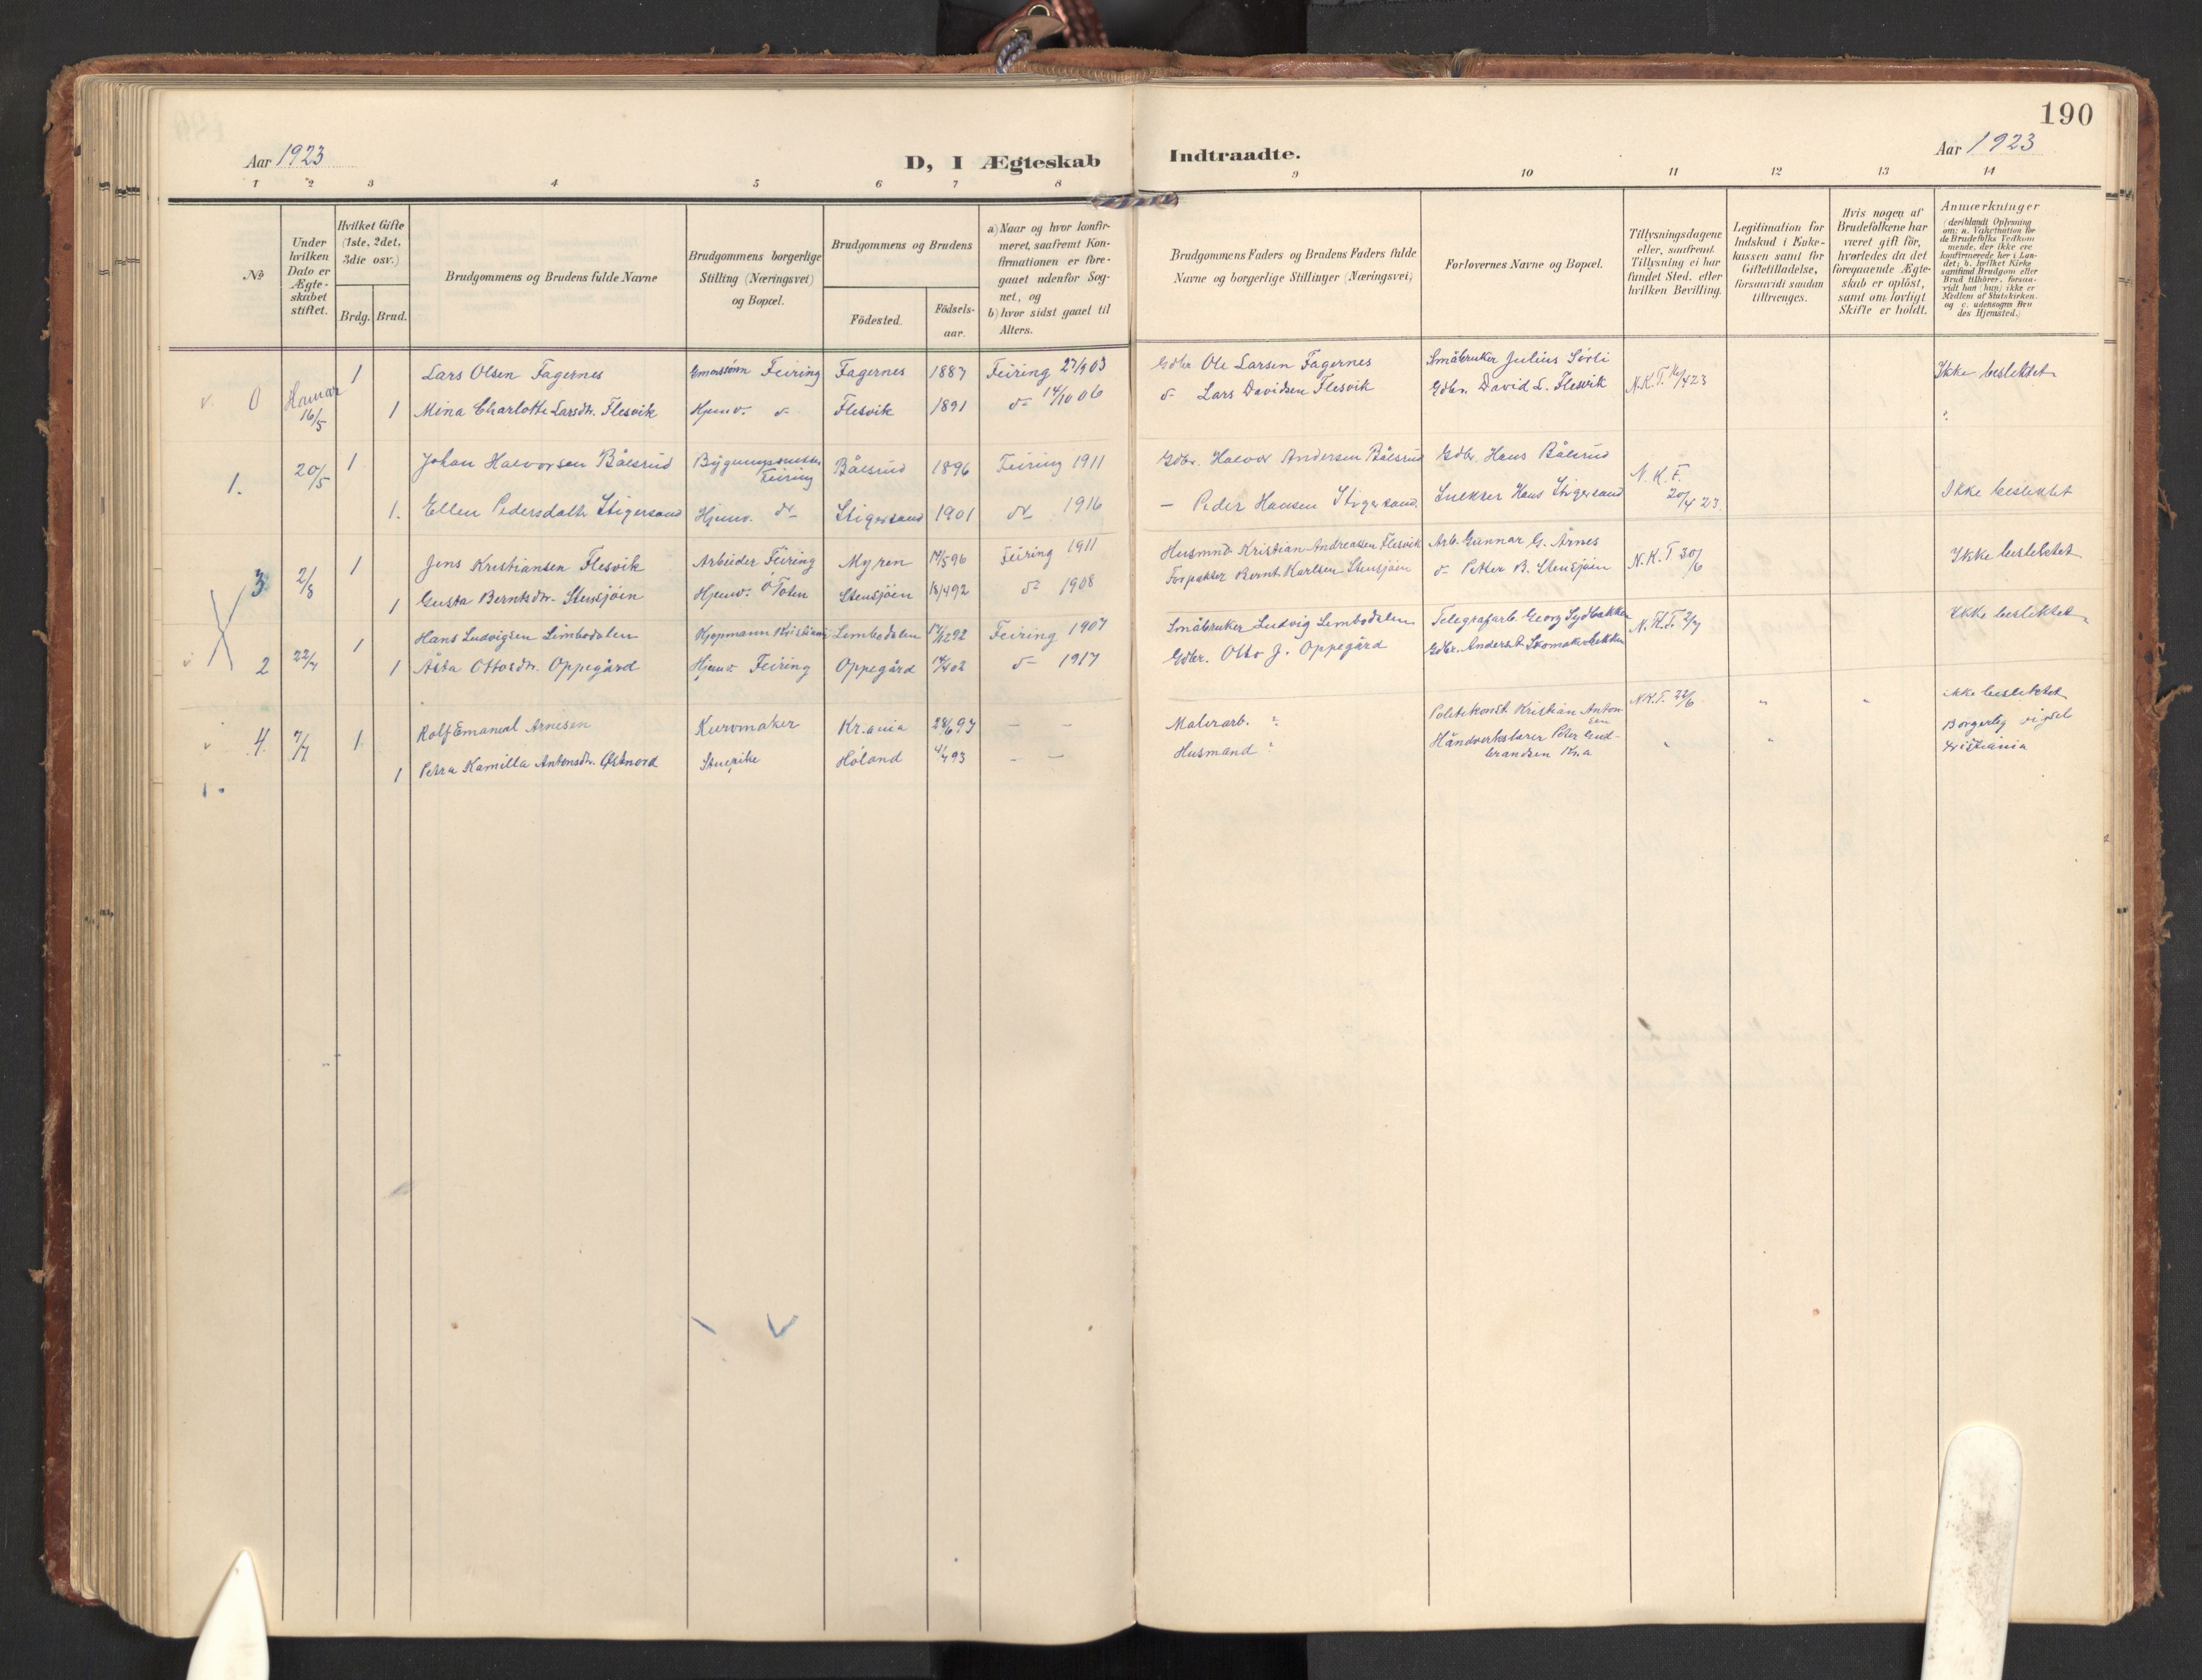 190
Aar 1923
D, I Ægteskab Indtraadte.
Aar 1923
1 2 3 4 5 6 7 8 9 10 11 12 13 14
No
Under
hvilken
Dato er
Ægte-
skabet
stiftet.
Hvilket Gifte
(1ste, 2det,
3die osv.)
Brdg. Brud.
Brudgommens og Brudens fulde Navne
Brudgommens borgerlige
Stilling (Næringsvei)
og Bopæl.
Brudgommens og Brudens
Födested.
Födsels-
aar.
a) Naar og hvor konfir-
meret, saafremt Kon-
firmationen er fore-
gaaet udenfor Sog-
net, og
b) hvor sidst gaaet til
Alters.
Brudgommens Faders og Brudens Faders fulde
Navne og borgerlige Stillinger (Næringsvei)
Forlovernes Navne og Bopæl.
Tillysningsdagene
eller, saafremt
Tillysning ei har
fundet Sted, efter
hvilken Bevilling.
Legitimation for
Indskud i Enke-
kassen samt for
Giftetilladelse,
forsaavidt saadan
tiltrænges.
Hvis nogen af
Brudefolkene har
været gift för,
hvorledes da det
foregaaende Ægte-
skab er oplöst,
samt om lovligt
Skifte er holdt.
Anmærkninger
(deriblandt Oplysning
om: a. Vakcination for
de Brudefolks Vedkom
mende, der ikke ere
konfirmerede her i Lan-
det; b. hvilket Kirke
samfund Brudgom eller
Brud tilhörer, forsaa-
vidt han (hun) ikke er
Medlem af Statskirken.
og c. udensogns Bru
des Hjemsted.)
0 Hamar 16/5 1 Lars Olsen Fagernes Feiring Fagernes 1887 Feiring 27/9 03 Gdbr Ole Larsen Fagernes Småbruker Julius Sörli N.K.T. 16/4 23 Ikke beslektet
1 Mina Charlotte Larsdtr. Flesvik Hjemv. d- Flesvik 1891 d- 14/10 06 d- Lars Davidsen Flesvik Gdbr. David L. Flesvik
1. 20/5 1 Johan Halvorsen Bålsrud Bygningssnekker Feiring Bålsrud 1896 Feiring 1911 Gdbr. Halvor Andersen Bålsrud Gdbr. Hans Bålsrud N.K.T. 20/4 23. Ikke beslektet
1. Ellen Pedersdatter Stigersand Hjemv. do Stigersand 1901 do 1916 — Peder Hansen Stigersand. Snekker Hans Stigersand
3 2/8 1 Jens Kristiansen Flesvik Arbeider Feiring Myren 17/5 96 Feiring 1911 Husmnd. Kristian Andreassen Flesvik Arb. Gunnar G. Årnes N.K.T 30/6 Ikke beslektet
1 Gusta Berntsdtr. Stensjöen Hjemv. Ö Toten Stensjöen 18/4 92 d- 1908 Forpakter Bernt Karlsen Stensjöen d- Petter B. Stensjöen
2 22/7 1 Hans Ludvigsen Limbodalen Kjøpmann Kristiania Limbodalen 17/12 92 Feiring 1907 Småbruker Ludvig Limbodalen Telegrafarb. Georg Sydbakken N.K.T. 2/7 Ikke beslektet
1 Åsta Ottosdtr. Oppegård Hjemv. Feiring Oppegård 14/4 02 d- 1917 Gdbr. Otto J. Oppegård Gdbr. Anders Skomakerbekken
4 7/7 1 Rolf Emanuel Arnesen Kurvmaker Kr.ania 28/6 97 — — Malerarb. ? Politikonst. Kristian Anton-
sen N.K.T. 22/6 " " ikke beslektet
1 Petra Kamilla Antonsdtr. Østnord Stuepike Höland 4/4 93 — — Husmand ? Håndverkslærer Peter Gud-
brandsen Kr.a " " Borgerlig vigsel
Kristiania